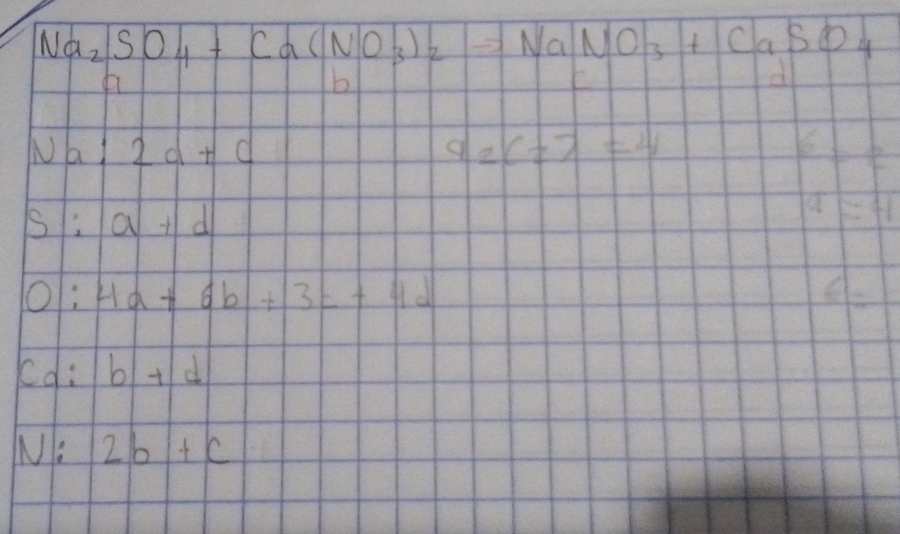 Na₂SO₄ + Ca(NO₃)₂ → NaNO₃ + CaSO₄
a b c d
Na: 2a + c
S: a + d
O: 4a + 6b + 3c + 4d
Ca: b + d
N: 2b + c